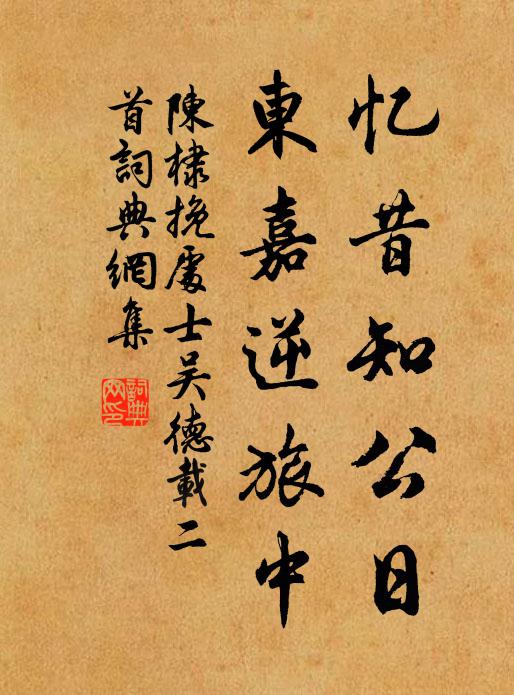 忆昔知公日
東嘉逆旅中
陳棣挽處士吴德載二
首詞典網集
詞典網印